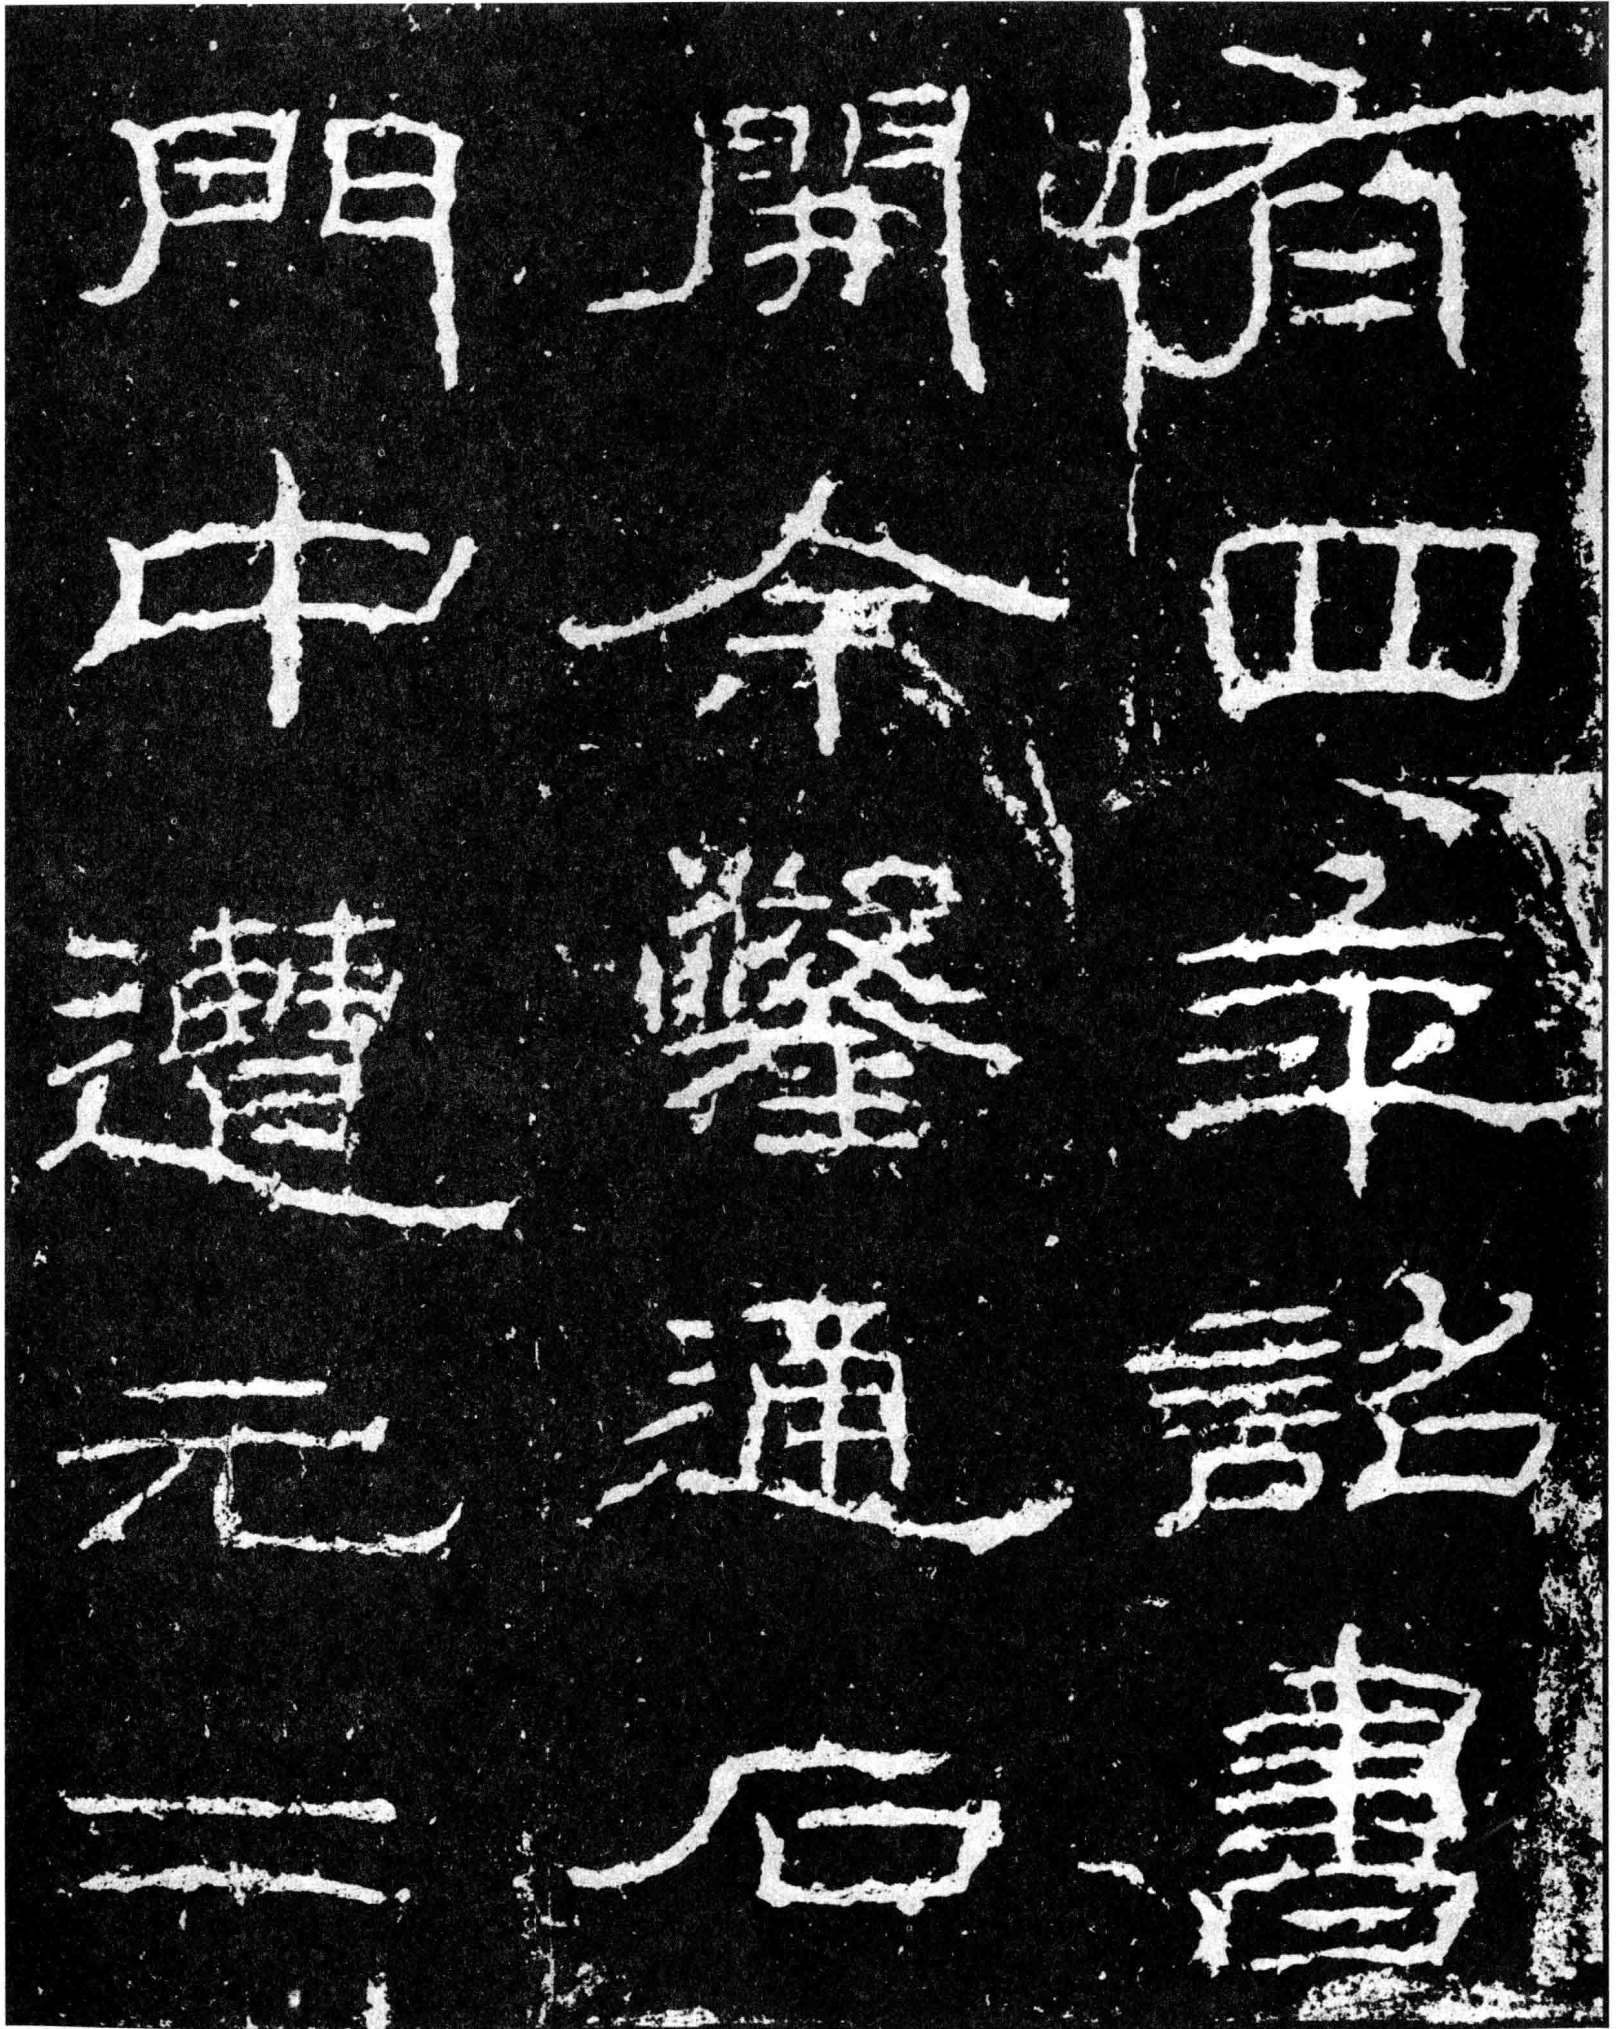 有四年詔書
開余鑿通石
門中遭元二